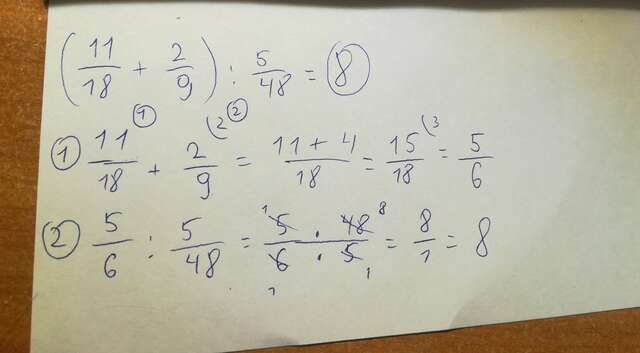 (11/18 + 2/9) : 5/48 = 8
① 11/18 ① + 2/9 (2 ② = 11 + 4/18 = 15/18 (3 = 5/6
② 5/6 : 5/48 = 1 5 · 48 8/6 1 · 5 1 = 8/1 = 8